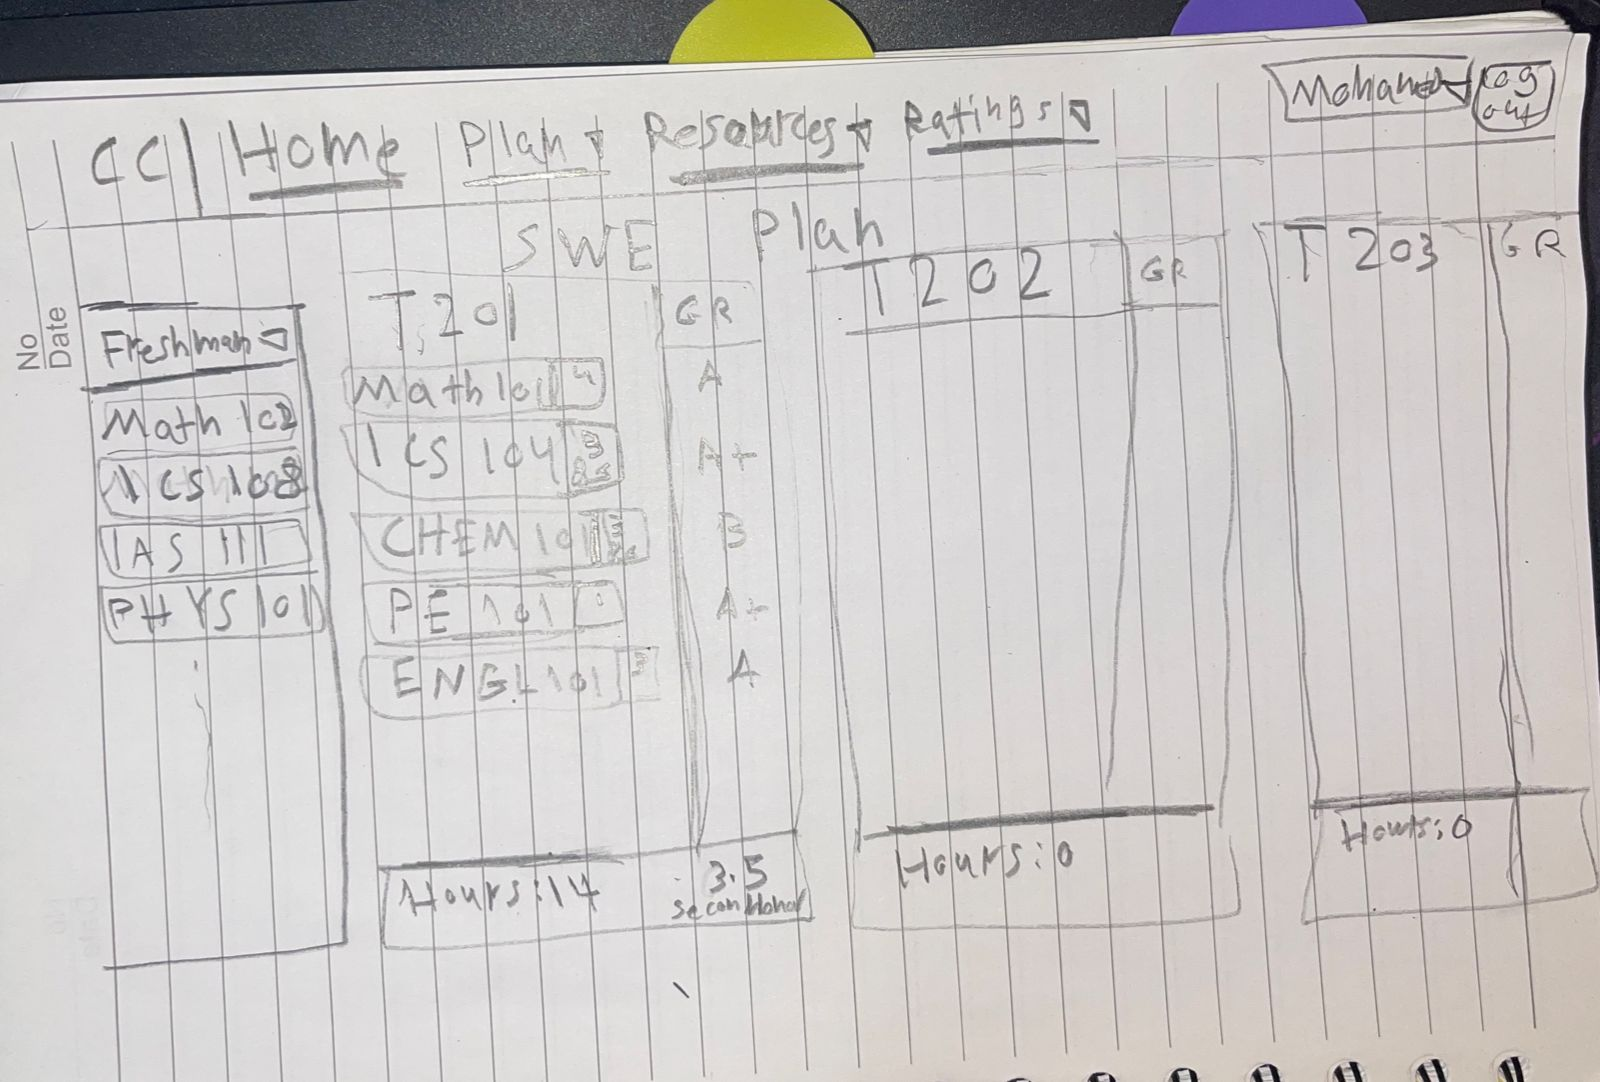 CC | Home Plan Resources Ratings Mohamed Log out
SWE Plan
No
Date
Freshman
Math 102
ICS 108
IAS 111
PHYS 101
T 201 GR
Math 101 4 A
ICS 104 3 A+
CHEM 101 B
PE 101 1 A+
ENGL 101 3 A
Hours: 14 3.5
second Honor
T 202 GR
Hours: 0
T 203 GR
Hours: 0